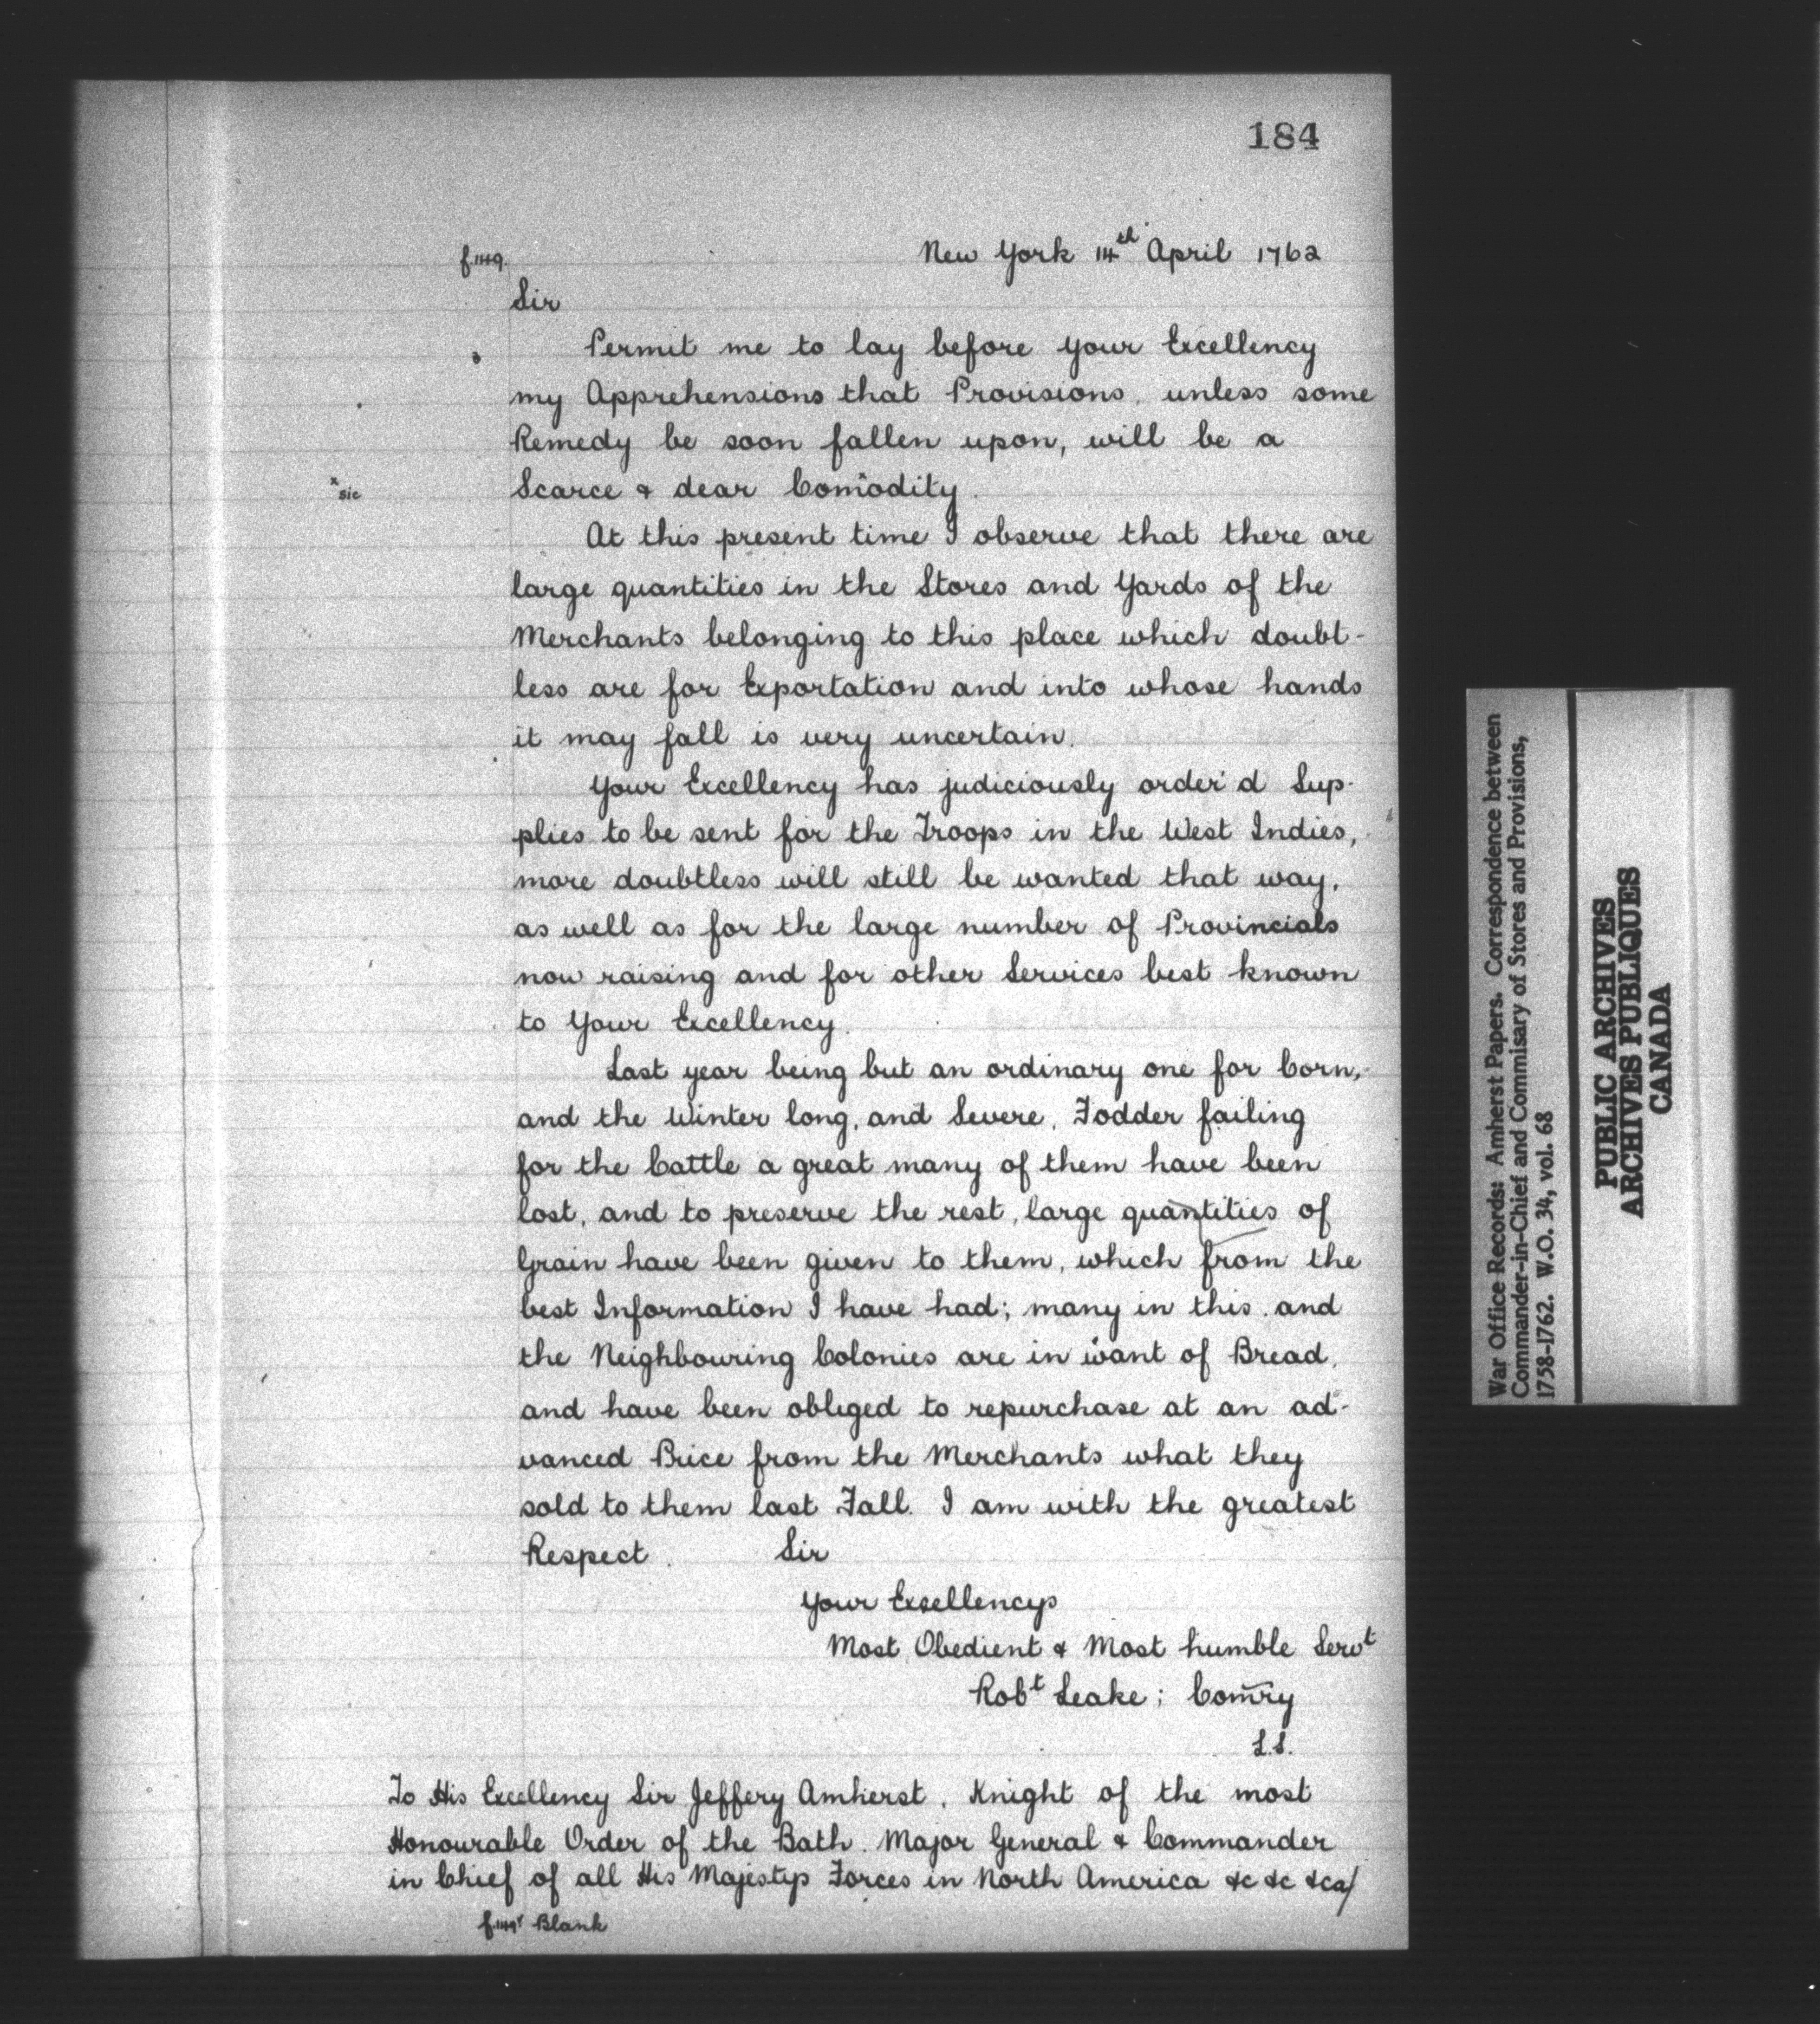 184
f.149.
New York 14th April 1762
Sir
Permit me to lay before your Excellency
my Apprehensions that Provisions, unless some
Remedy be soon fallen upon, will be a
x sic
Scarce & dear Com̃odity.
At this present time I observe that there are
large quantities in the Stores and Yards of the
Merchants belonging to this place which doubt-
less are for Exportation and into whose hands
it may fall is very uncertain.
Your Excellency has judiciously order'd Sup-
plies to be sent for the Troops in the West Indies,
more doubtless will still be wanted that way,
as well as for the large number of Provincials
now raising and for other Services best known
to Your Excellency.
Last year being but an ordinary one for Corn,
and the Winter long, and Severe, Fodder failing
for the Cattle a great many of them have been
lost, and to preserve the rest, large quantities of
Grain have been given to them, which from the
best Information I have had; many in this and
the Neighbouring Colonies are in want of Bread,
and have been obliged to repurchase at an ad-
vanced Price from the Merchants what they
sold to them last Fall. I am with the greatest
Respect. Sir
Your Excellencys
Most Obedient & Most humble Servt
Robt Leake; Com̃ry
L.S.
To His Excellency Sir Jeffery Amherst, Knight of the most
Honourable Order of the Bath. Major General & Commander
in Chief of all His Majestys Forces in North America &c &c &ca/
f.149v Blank
War Office Records: Amherst Papers. Correspondence between
Commander-in-Chief and Commisary of Stores and Provisions,
1758-1762. W.O. 34, vol. 68
PUBLIC ARCHIVES
ARCHIVES PUBLIQUES
CANADA